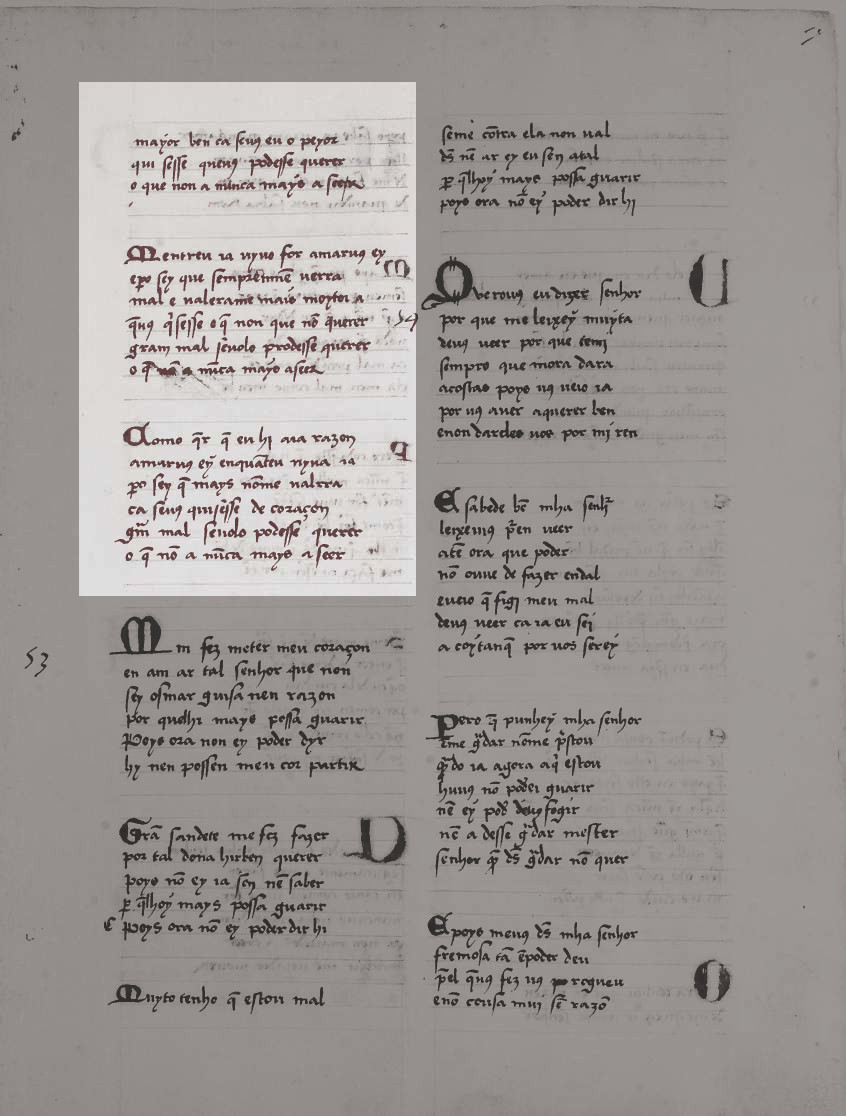 mayor ben ca seus eu o peyor
qui sesse queus podesse querer
o que non a nũca mays a seer
Mentreu ia uyuo for amarus ey
epo sey que sempreMME uerra
mal e ualerame mais moyto ia
q̃us q̃sesse o q̃ non que nõ querer
gram mal seuolo podesse querer
o q̃ nũca mays a seer
Como q̃r q̃ eu hi aia razon
amarus ey enquãteu uyua ia
po sey q̃ mays nõme ualrra
ca seus quisesse de coraçon
grã mal seuolo podesse querer
o q̃ nõ a nũca mays a seer
53
Min fez meter meu coraçon
en am ar tal senhor que non
sey osmar guisa nen razon
por quelhi mays possa guarir
Poys ora non ey poder dyr
hy nen possen meu cor partir
Grã sandece me fez fazer
por tal dona hirben querer
poys nõ ey ia sen nẽ saber
per q̃lhoy mays possa guarir
E Poys ora nõ ey poder dir hi
Muyto tenho q̃ estou mal
seme cõtra ela non ual
ds̃ nẽ ar ey eu sen atal
per q̃lhoy mays possa guarir
poys ora nõ ey poder dir hi
54
Querous eu dizer senhor
por que me leixey muyta
deus ueer por que temi
sempre que mora dara
acostas poys us ueio ia
por us auer aquerer ben
enon dardes uos por mi ren
E sabede bẽ mha senhr̃
leixeius p̃en ueer
atẽ ora que poder
nõ ouue de fazer endal
eueio q̃ figi meu mal
deus ueer ca ia eu sei
a coytanq̃ por uos serey
Pero q̃ punhey mha senhor
eme g̃dar nõme p̃stou
quãdo ia agora aq̃ estou
huus nõ podei guarir
nẽ ey poder deuo fogir
nẽ a desse g̃dar mester
senhor q̃ ds̃ g̃dar nõ quer
E poys meus ds̃ mha senhor
fremosa tã ẽpoder deu
p̃el q̃us fez us rogueu
enõ cousa mui sẽ razõ